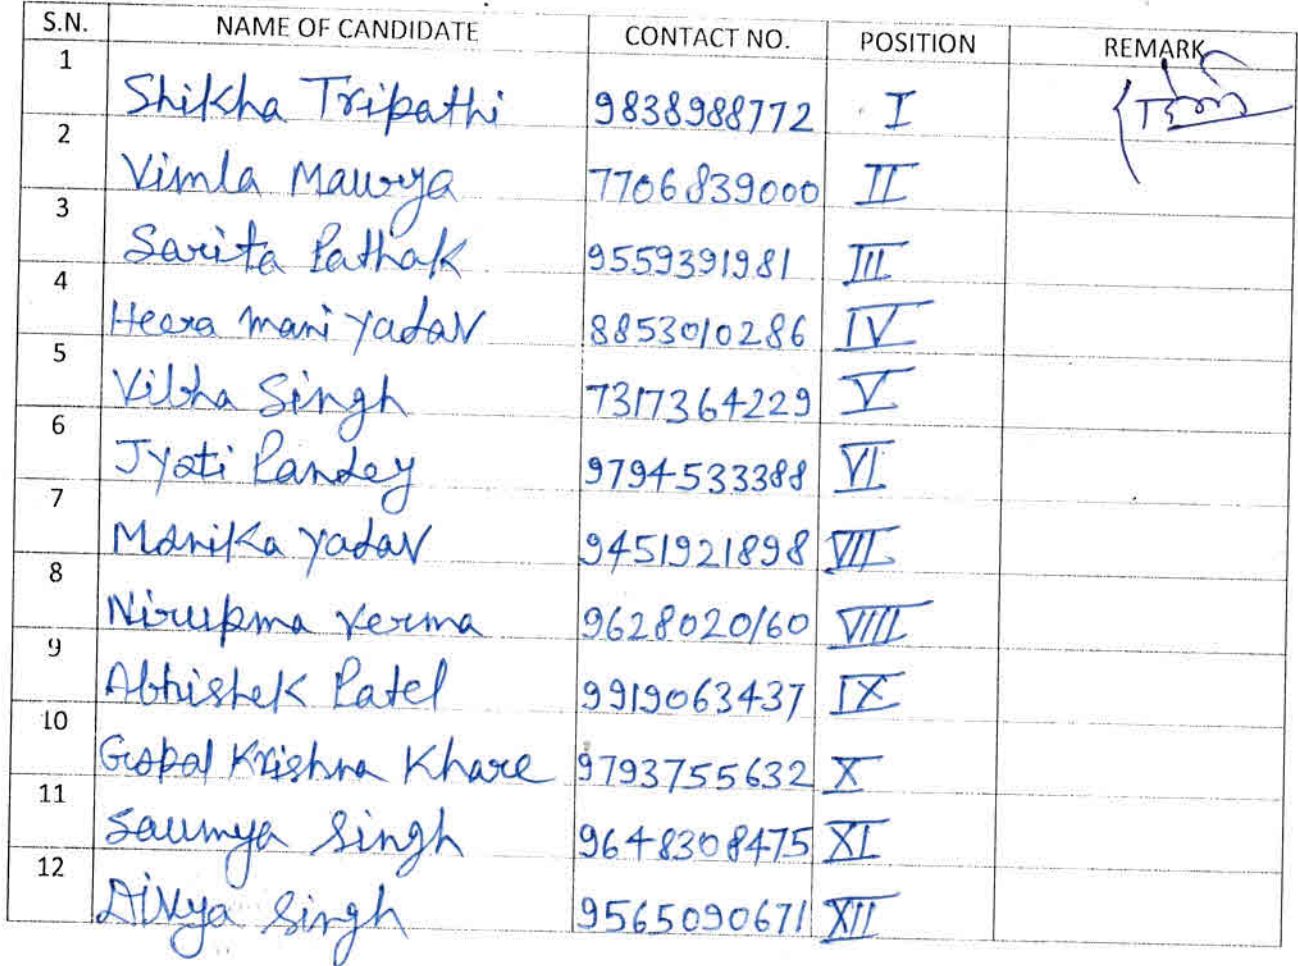 S.N. NAME OF CANDIDATE CONTACT NO. POSITION REMARK
1 Shikha Tripathi 9838988772 I
2 Vimla Maurya 7706839000 II
3 Sarita Pathak 9559391981 III
4 Heera mani yadav 8853010286 IV
5 Vibha Singh 7317364229 V
6 Jyoti Pandey 9794533388 VI
7 Monika yadav 9451921898 VII
8 Nirupma Verma 9628020160 VIII
9 Abhishek Patel 9919063437 IX
10 Gopal Krishna Khare 9793755632 X
11 Saumya Singh 9648308475 XI
12 Divya Singh 9565090671 XII